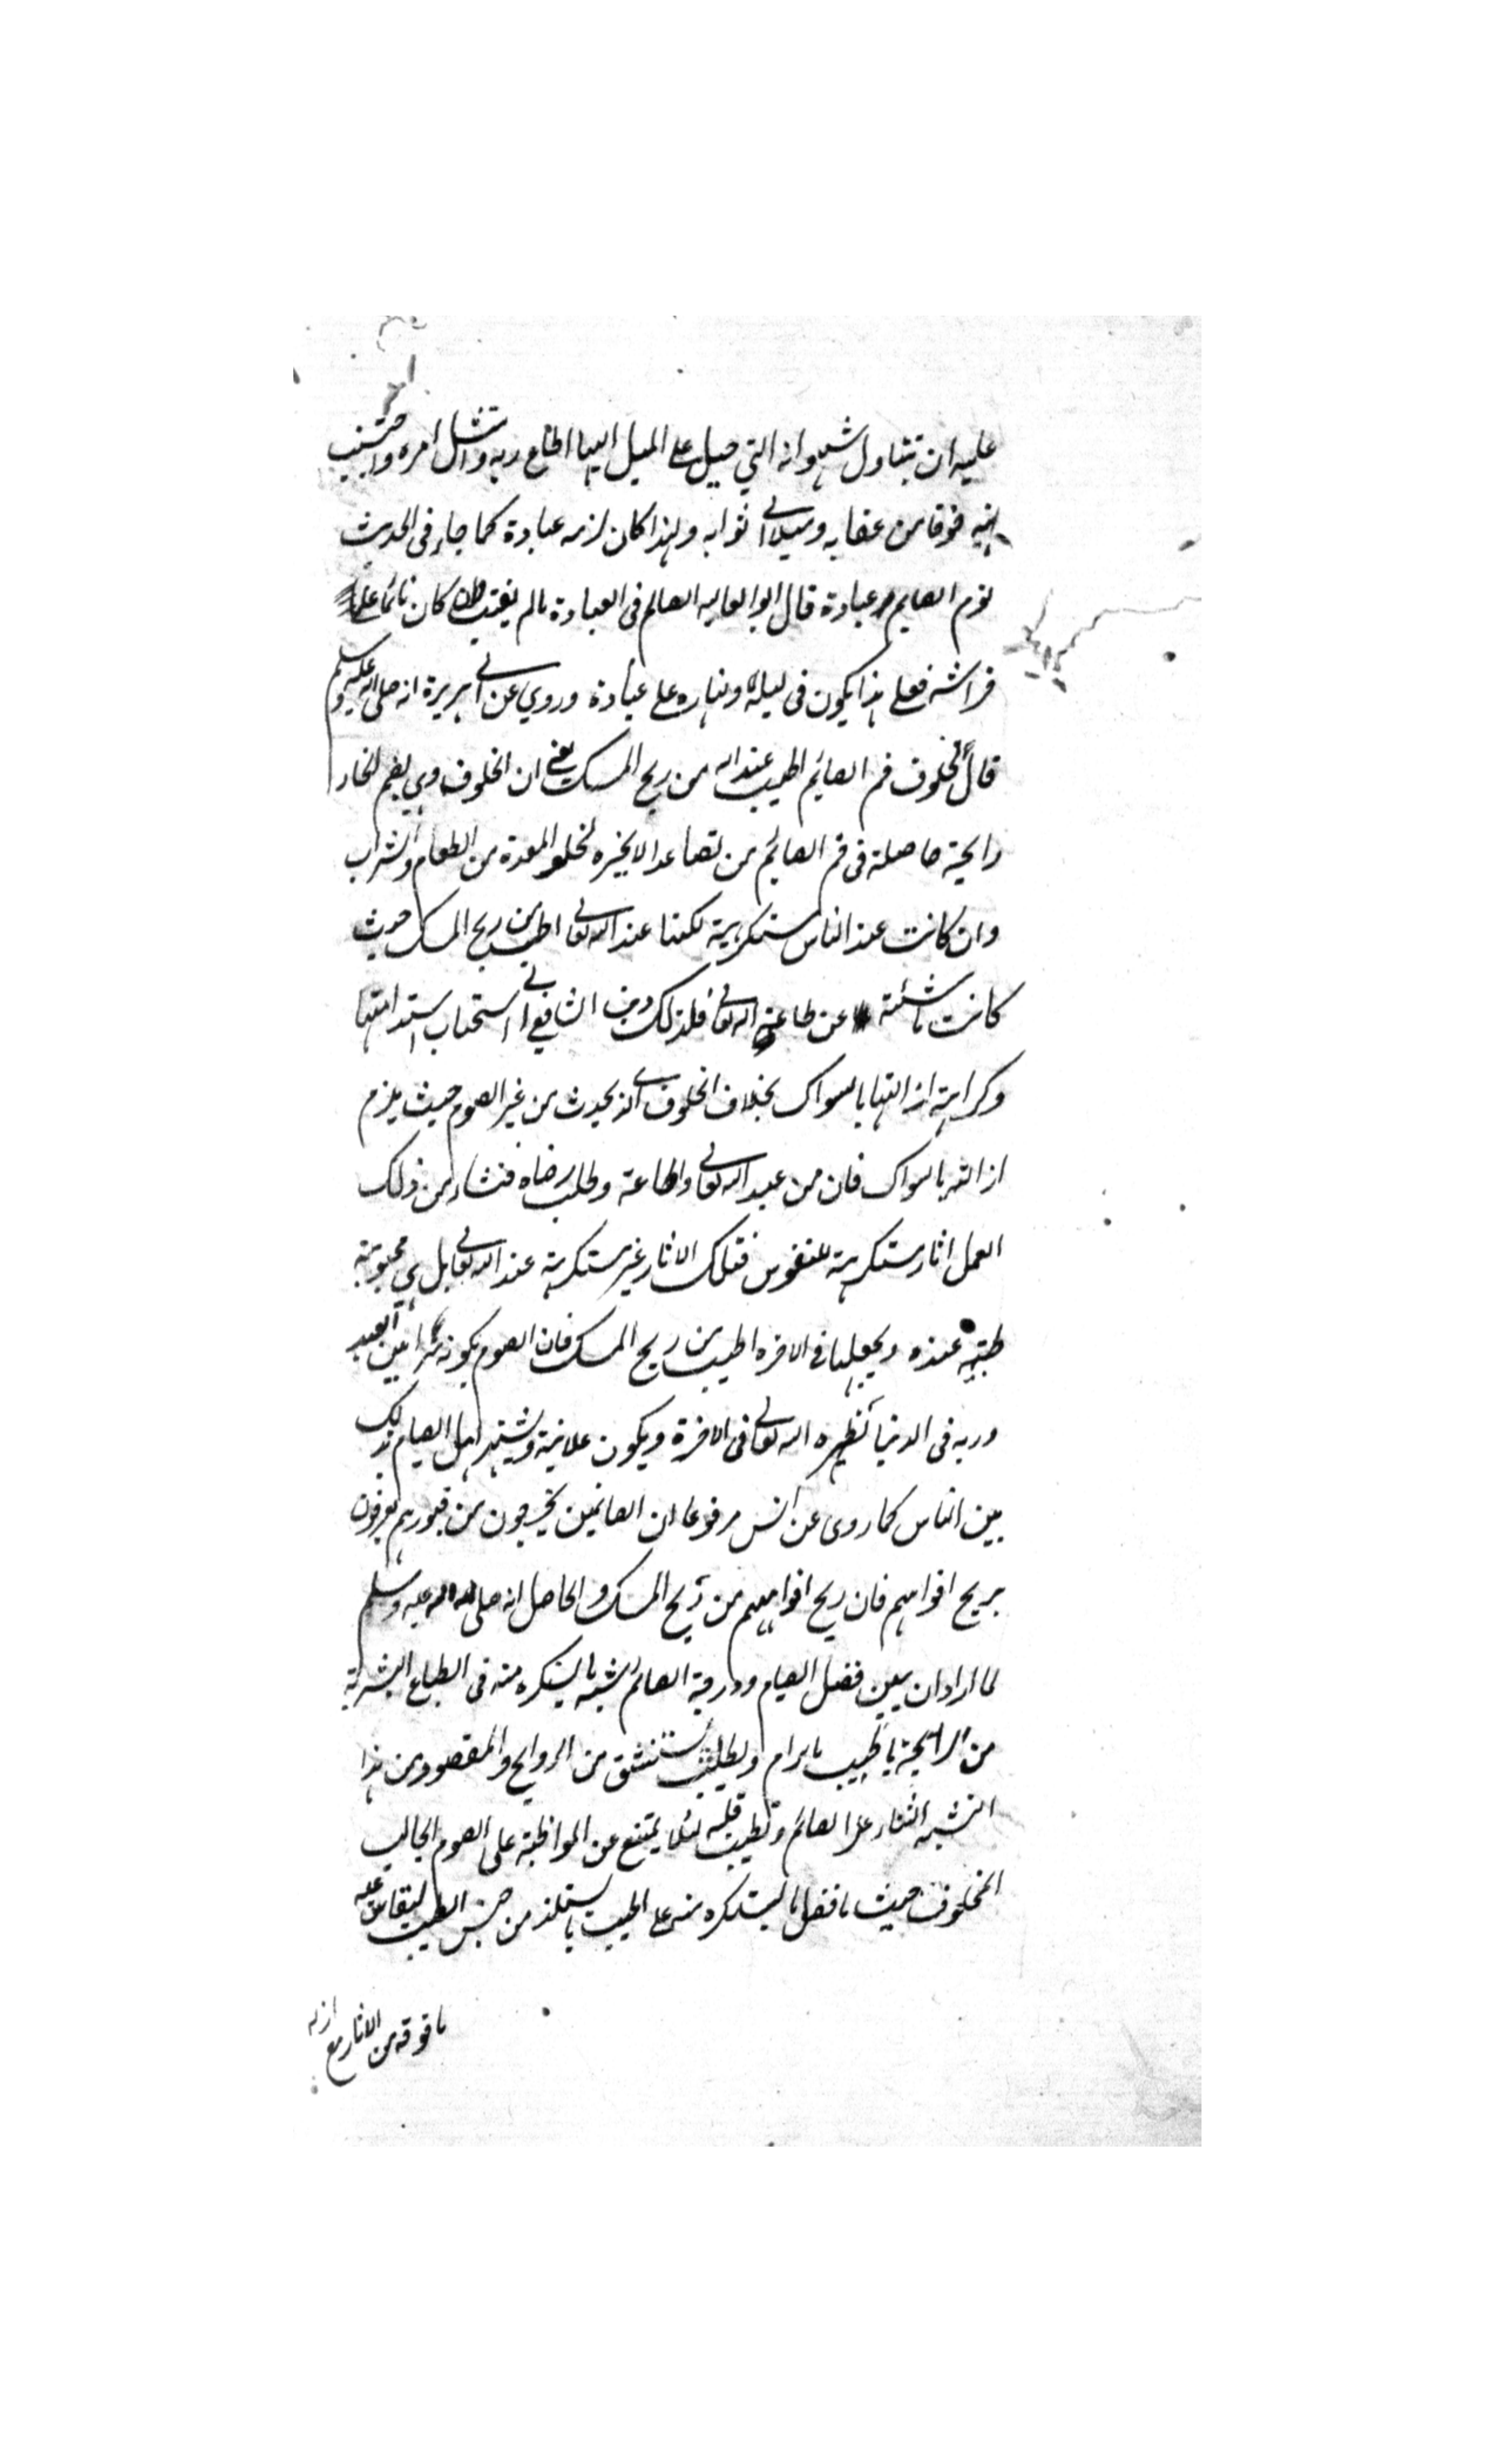 عليه ان تتناول شهواته التي جبل على الميل اليها اطاع ربه وامتثل امره واجتنب
نهيه خوفا من عقابه وميلا الى ثوابه ولهذا كان نومه عبادة كما جاء في الحديث
نوم الصايم عبادة قال ابو العاليه الصائم في العبادة مالم يغتب وان كان نائما على
فراشه فعلى هذا يكون في ليله ونهاره على عبادة وروي عن ابي هريرة انه صلى الله عليه وسلم
قال لخلوف فم الصايم اطيب عند الله من ريح المسك يعني ان الخلوف وهي بضم الخاء
رايحة حاصلة في فم الصايم من تصاعد الابخره لخلو المعدة من الطعام والشراب
وان كانت عند الناس مستكرهة لكنها عند الله تعالى اطيب من ريح المسك حيث
كانت ناشئة عن طاعة الله تعالى فلذلك ذهب الشافعي الى استحباب استدامتها
وكراهة ازالتها بالسواك بخلاف الخلوف الذي يحدث من غير الصوم حيث يلزم
ازالته بالسواك فان من عبد الله تعالى واطاعه وطلب رضاه فنشاء من ذلك
العمل اثار مستكرهة للنفوس فتلك الاثار غير مستكرهة عند الله تعالى بل هي محبوبة
طيبة عنده ويجعلها في الاخره اطيب من ريح المسك فان الصوم لكونه سرا بين العبد
وربه في الدنيا يظهره الله تعالى في الاخرة ويكون علانية ويشتهر اهل الصيام بذلك
بين الناس كما روى عن انس مرفوعا ان الصائمين يخرجون من قبورهم يعرفون
بريح افواههم فان ريح افواههم من ريح المسك والحاصل انه صلى الله عليه وسلم
لما اراد ان يبين فضل الصيام ودرجة الصائم شبه ما يستكره منه في الطباع البشرية
من الرايحة باطيب ما يرام ويطلب يستنشق من الروايح والمقصود من هذا
التشبيه الثناء على الصائم وتطييب قلبه لئلا يمتنع عن المواظبة على الصوم الجالب
الخلوف حيث ما فضل ما يستكره منه على اطيب ما يستلذ من جنس الطيب ليقاس عليه
ما فوقه من الاثار مع